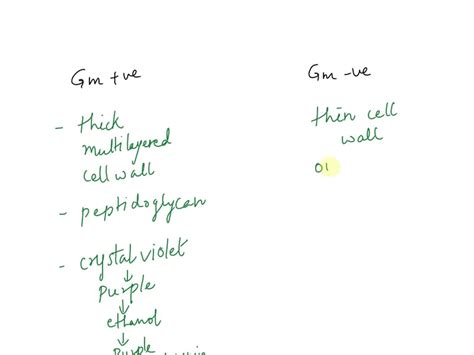 Gm +ve
- thick
multilayered
cell wall
- peptidoglycan
- crystal violet
↓
purple
↓
ethanol
↓
Purple
Gm -ve
thin cell
wall